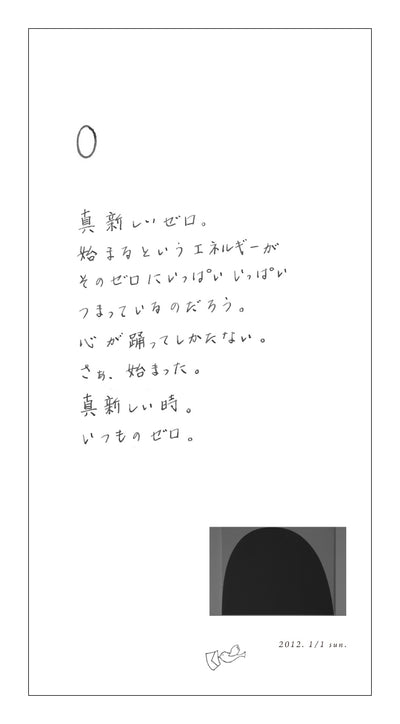 0
真新しいゼロ。
始まるというエネルギーが
そのゼロにいっぱいいっぱい
つまっているのだろう。
心が踊ってしかたない。
さぁ、始まった。
真新しい時。
いつものゼロ。
2012. 1/1 sun.